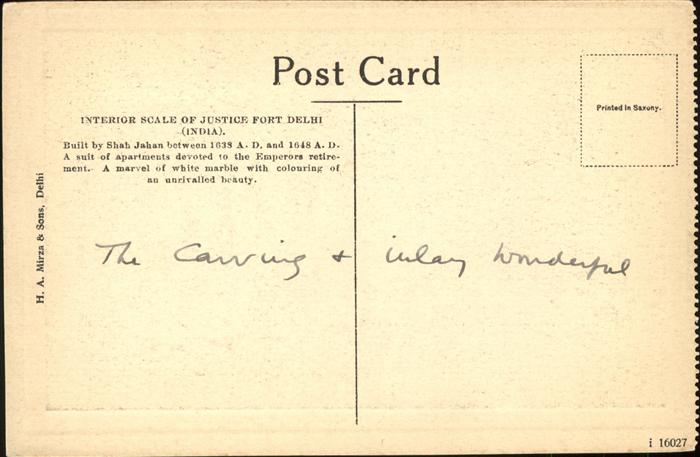 Post Card
INTERIOR SCALE OF JUSTICE FORT DELHI
(INDIA).
Built by Shah Jahan between 1638 A. D. and 1648 A. D.
A suit of apartments devoted to the Emperors retire-
ment. A marvel of white marble with colouring of
an unrivalled beauty.
Printed in Saxony.
H. A. Mirza & Sons, Delhi
The Carving & inlay wonderful
i 16027